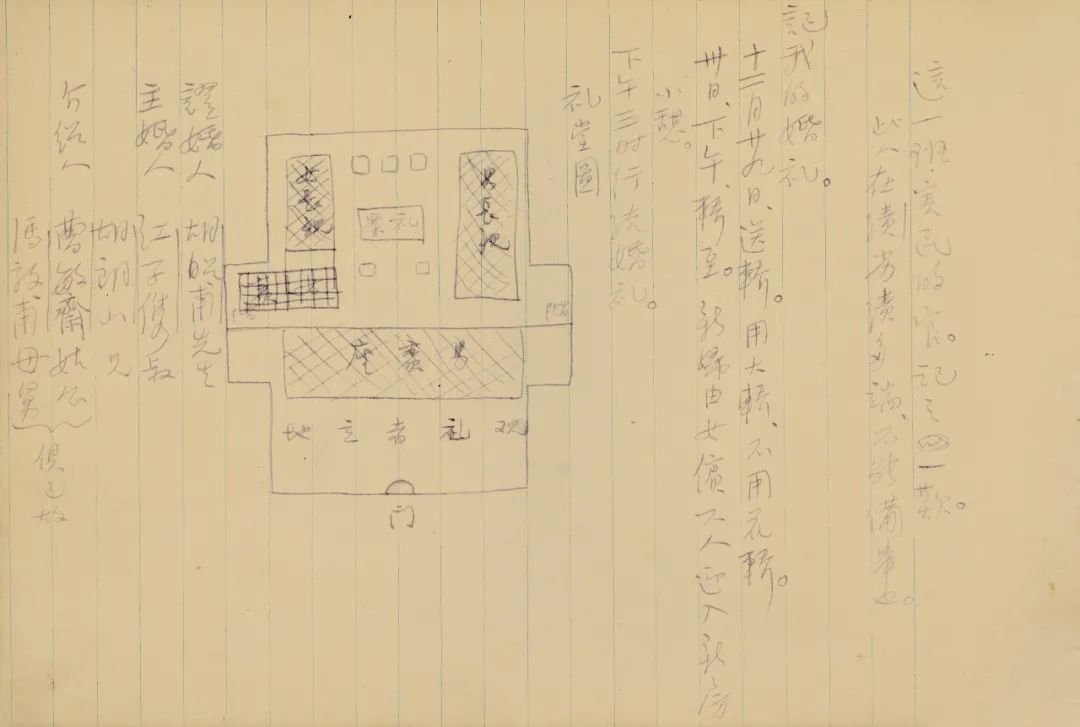 這一班害民的官。記之四一款。
此人在績劣績多端、不能備舉也。
記我的婚礼。
十二月廿九日、送轎。用大轎、不用花轎。
卅日、下午、轎至。新婦由女儐二人迎入新房
小憩。
下午三时行结婚礼。
礼堂圖
男長親
礼案
女長親
男賓座
观礼者立地
门
證婚人 胡昭甫先生
主婚人 江子雋叔
胡朗山兄
介紹人 曹敏齋姑公
馮敦甫母舅
俱已故